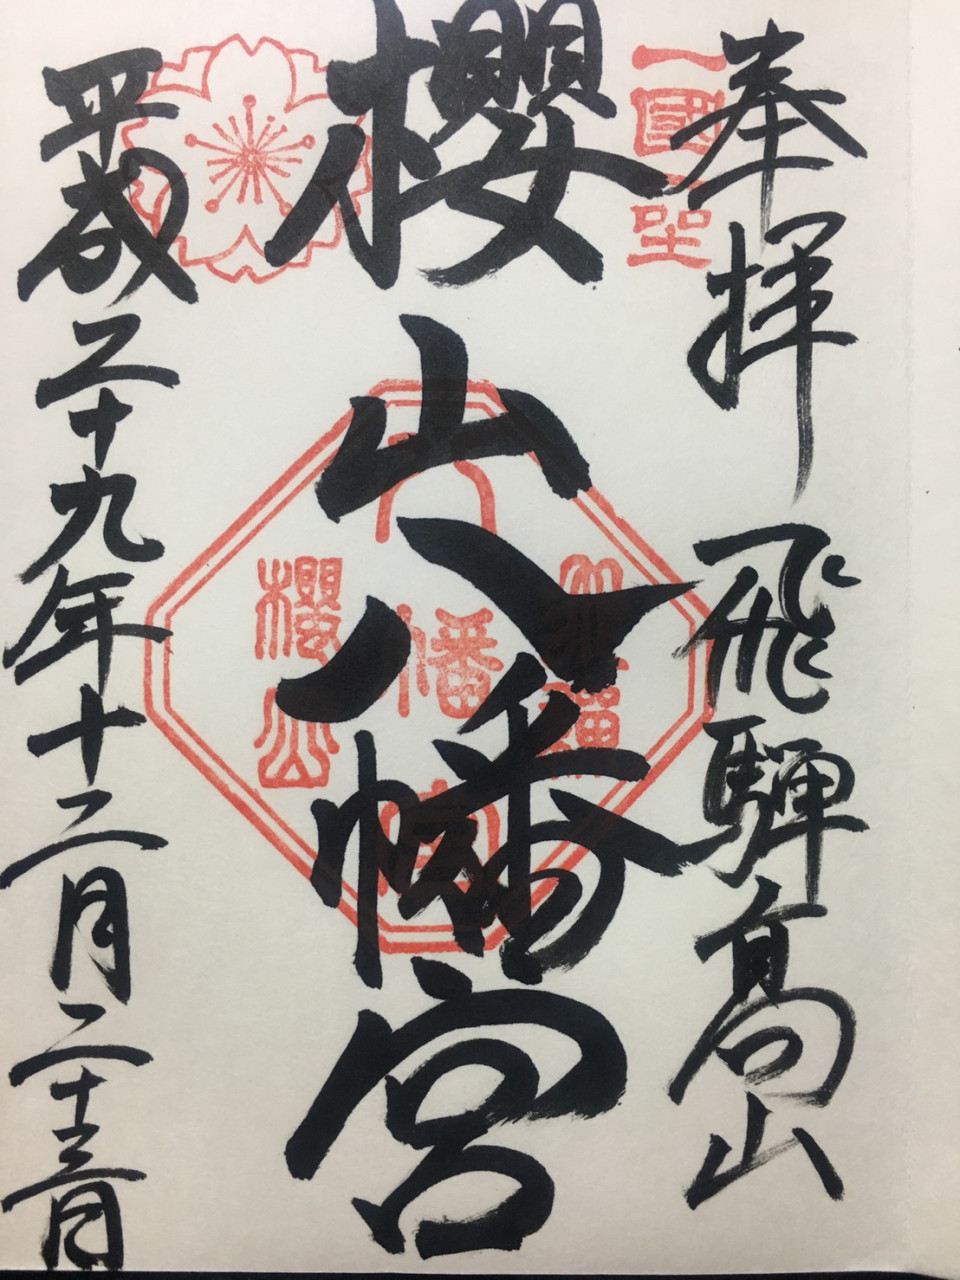 奉拝　飛騨高山
一國
櫻山八幡宮
八幡宮
櫻山
平成二十九年十二月二十三日